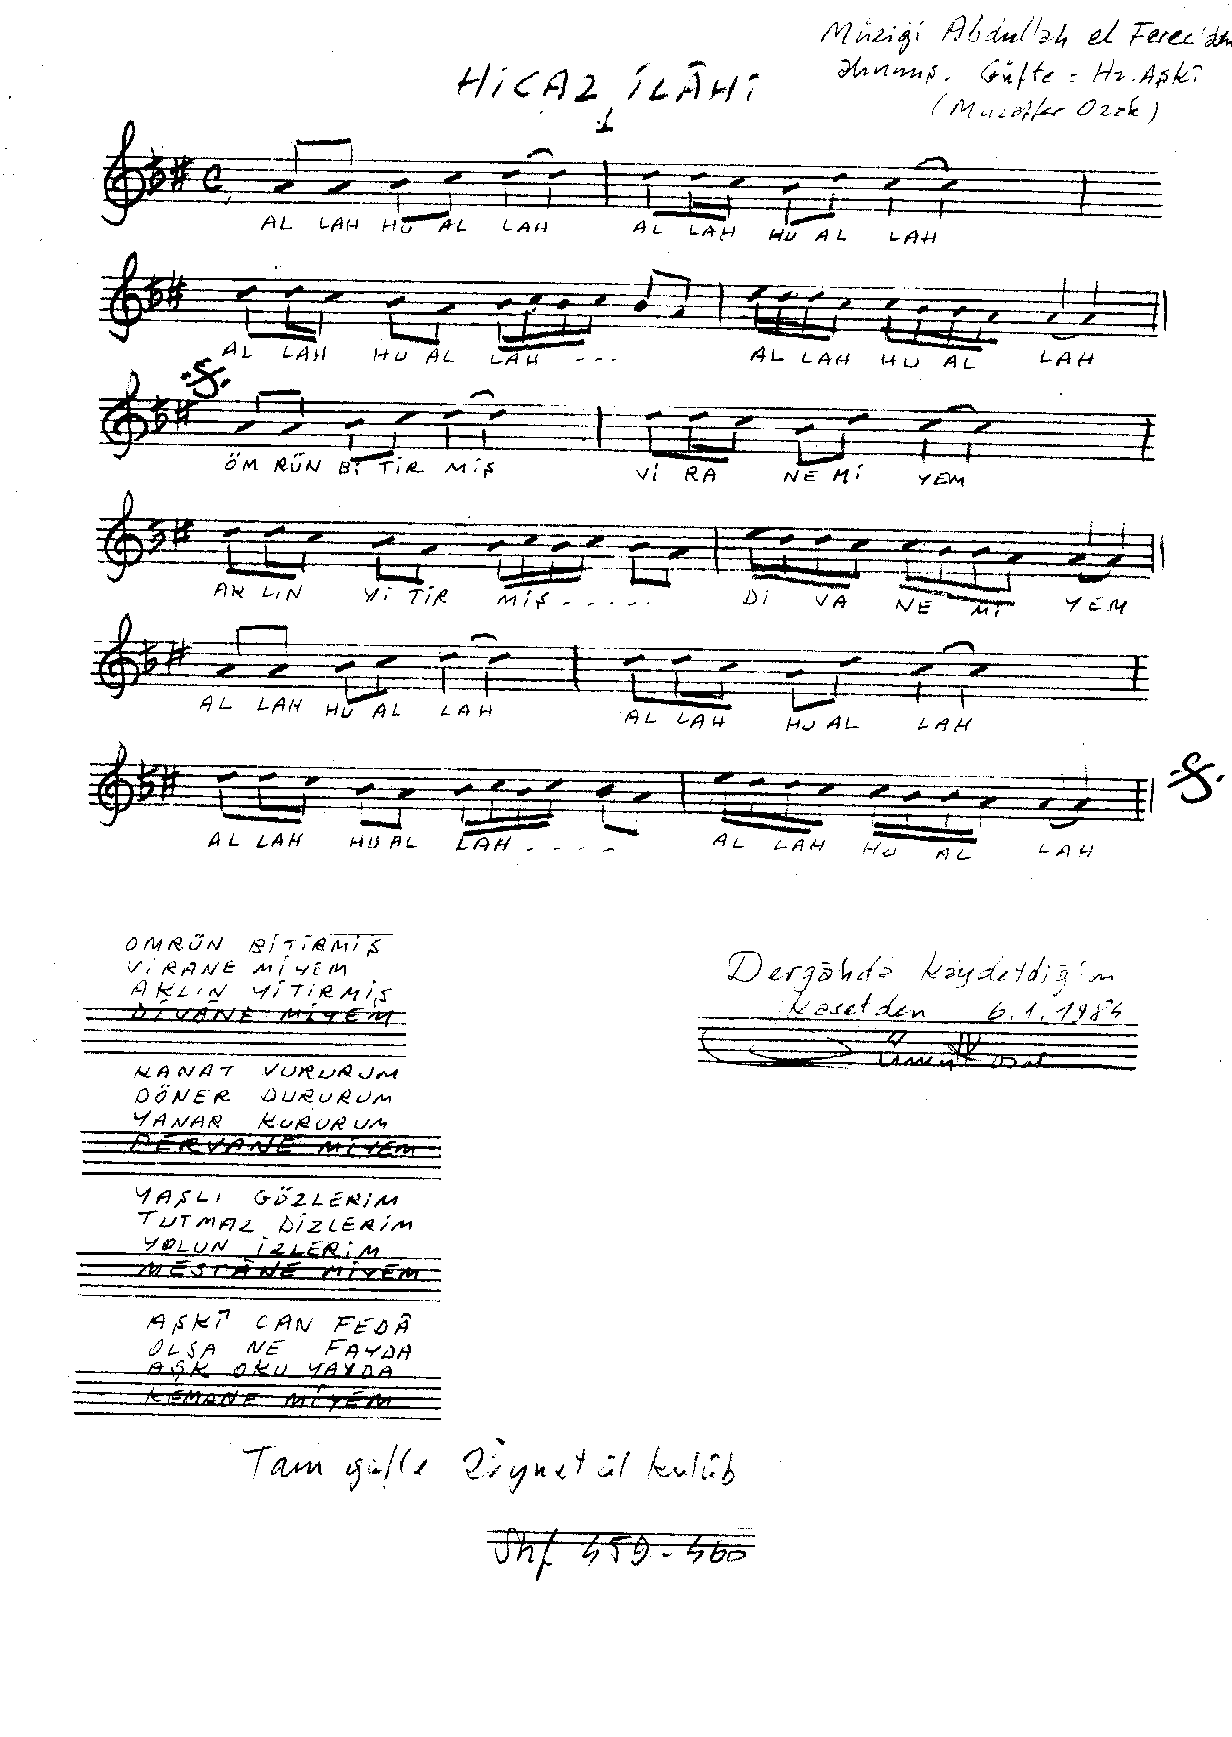 Müziği Abdullah el Ferec'den
alınmış. Güfte = Hz. Aşkî
(Muzaffer Ozak)
HİCAZ İLÂHİ
1
AL LAH HU AL LAH AL LAH HU AL LAH
AL LAH HU AL LAH - - - AL LAH HU AL LAH
ÖM RÜN Bİ TİR MİŞ Vİ RA NE Mİ YEM
AK LIN Yİ TİR MİŞ - - - - - Dİ VA NE Mİ YEM
AL LAH HU AL LAH AL LAH HU AL LAH
AL LAH HU AL LAH - - - - AL LAH HU AL LAH
OMRÜN BİTİRMİŞ
VİRANE MİYEM
AKLIN YİTİRMİŞ
DİVÂNE MİYEM
KANAT VURURUM
DÖNER DURURUM
YANAR KURURUM
PERVANE MİYEM
YAŞLI GÖZLERİM
TUTMAZ DİZLERİM
YOLUN İZLERİM
MESTÂNE MİYEM
AŞKÎ CAN FEDÂ
OLSA NE FAYDA
AŞK OKU YAYDA
KEMANE MİYEM
Dergâhda kaydetdiğim
kasetden 6.1.1984
Tam güfte Ziynet ül kulûb
Shf 459-460